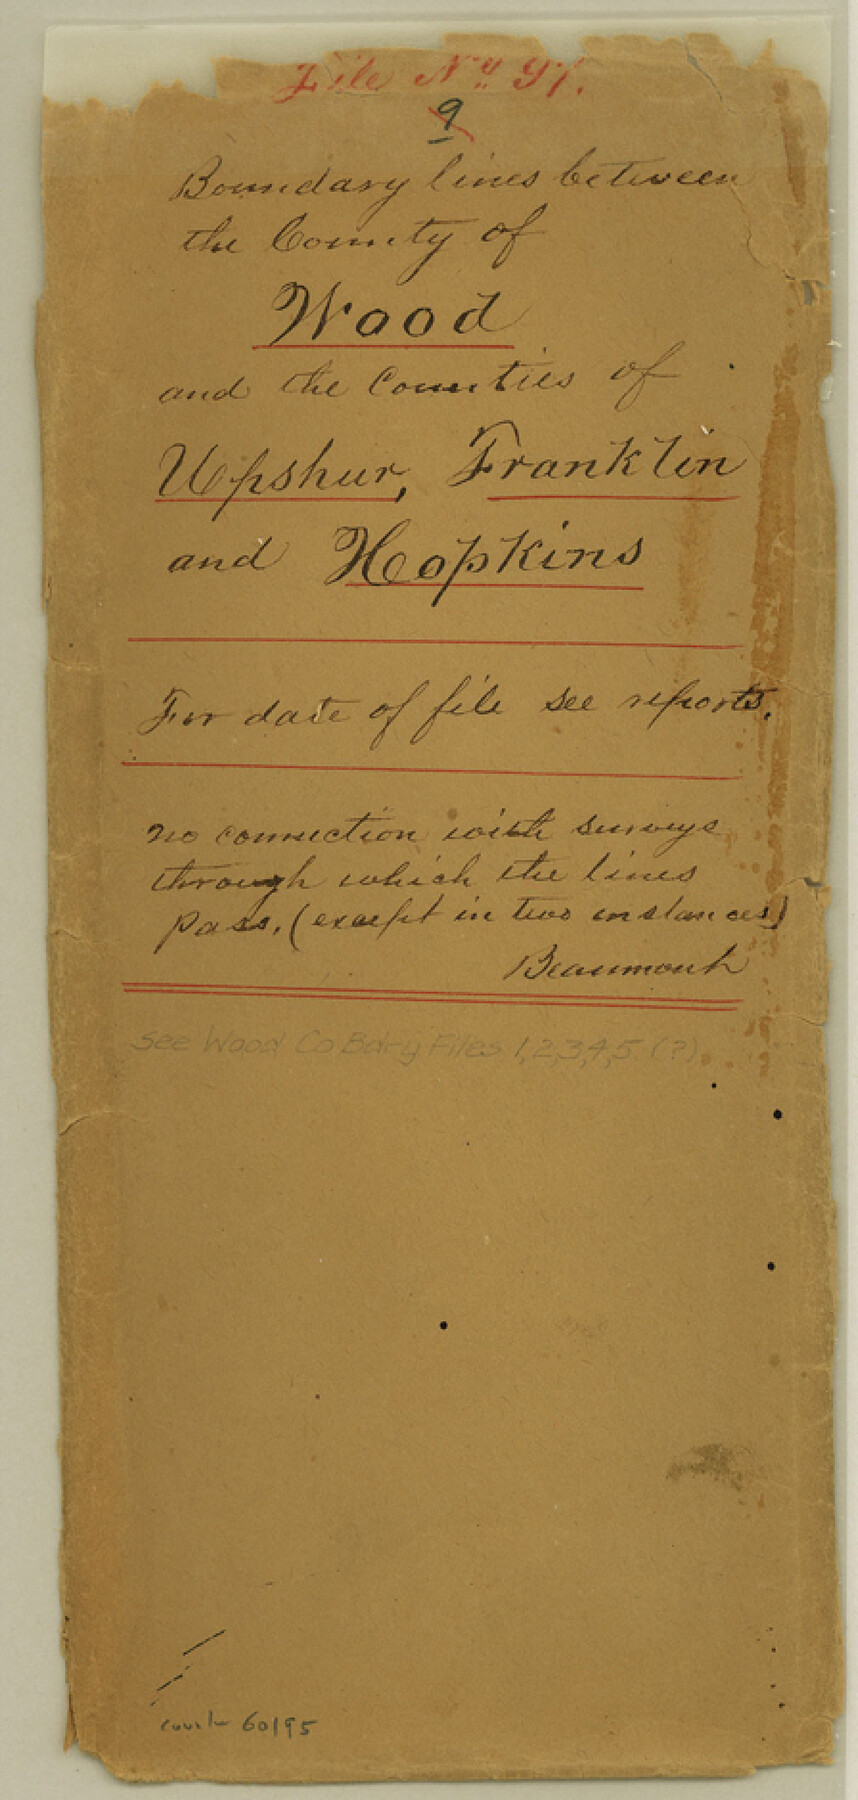 File No. 91.
9
Boundary lines between
the County of
Wood
and the Counties of
Upshur, Franklin
and Hopkins
For date of file see reports.
no connection with surveys
through which the lines
Pass. (except in two instances)
Beaumont
see Wood Co Bdry Files 1,2,3,4,5 (?)
counter 60195